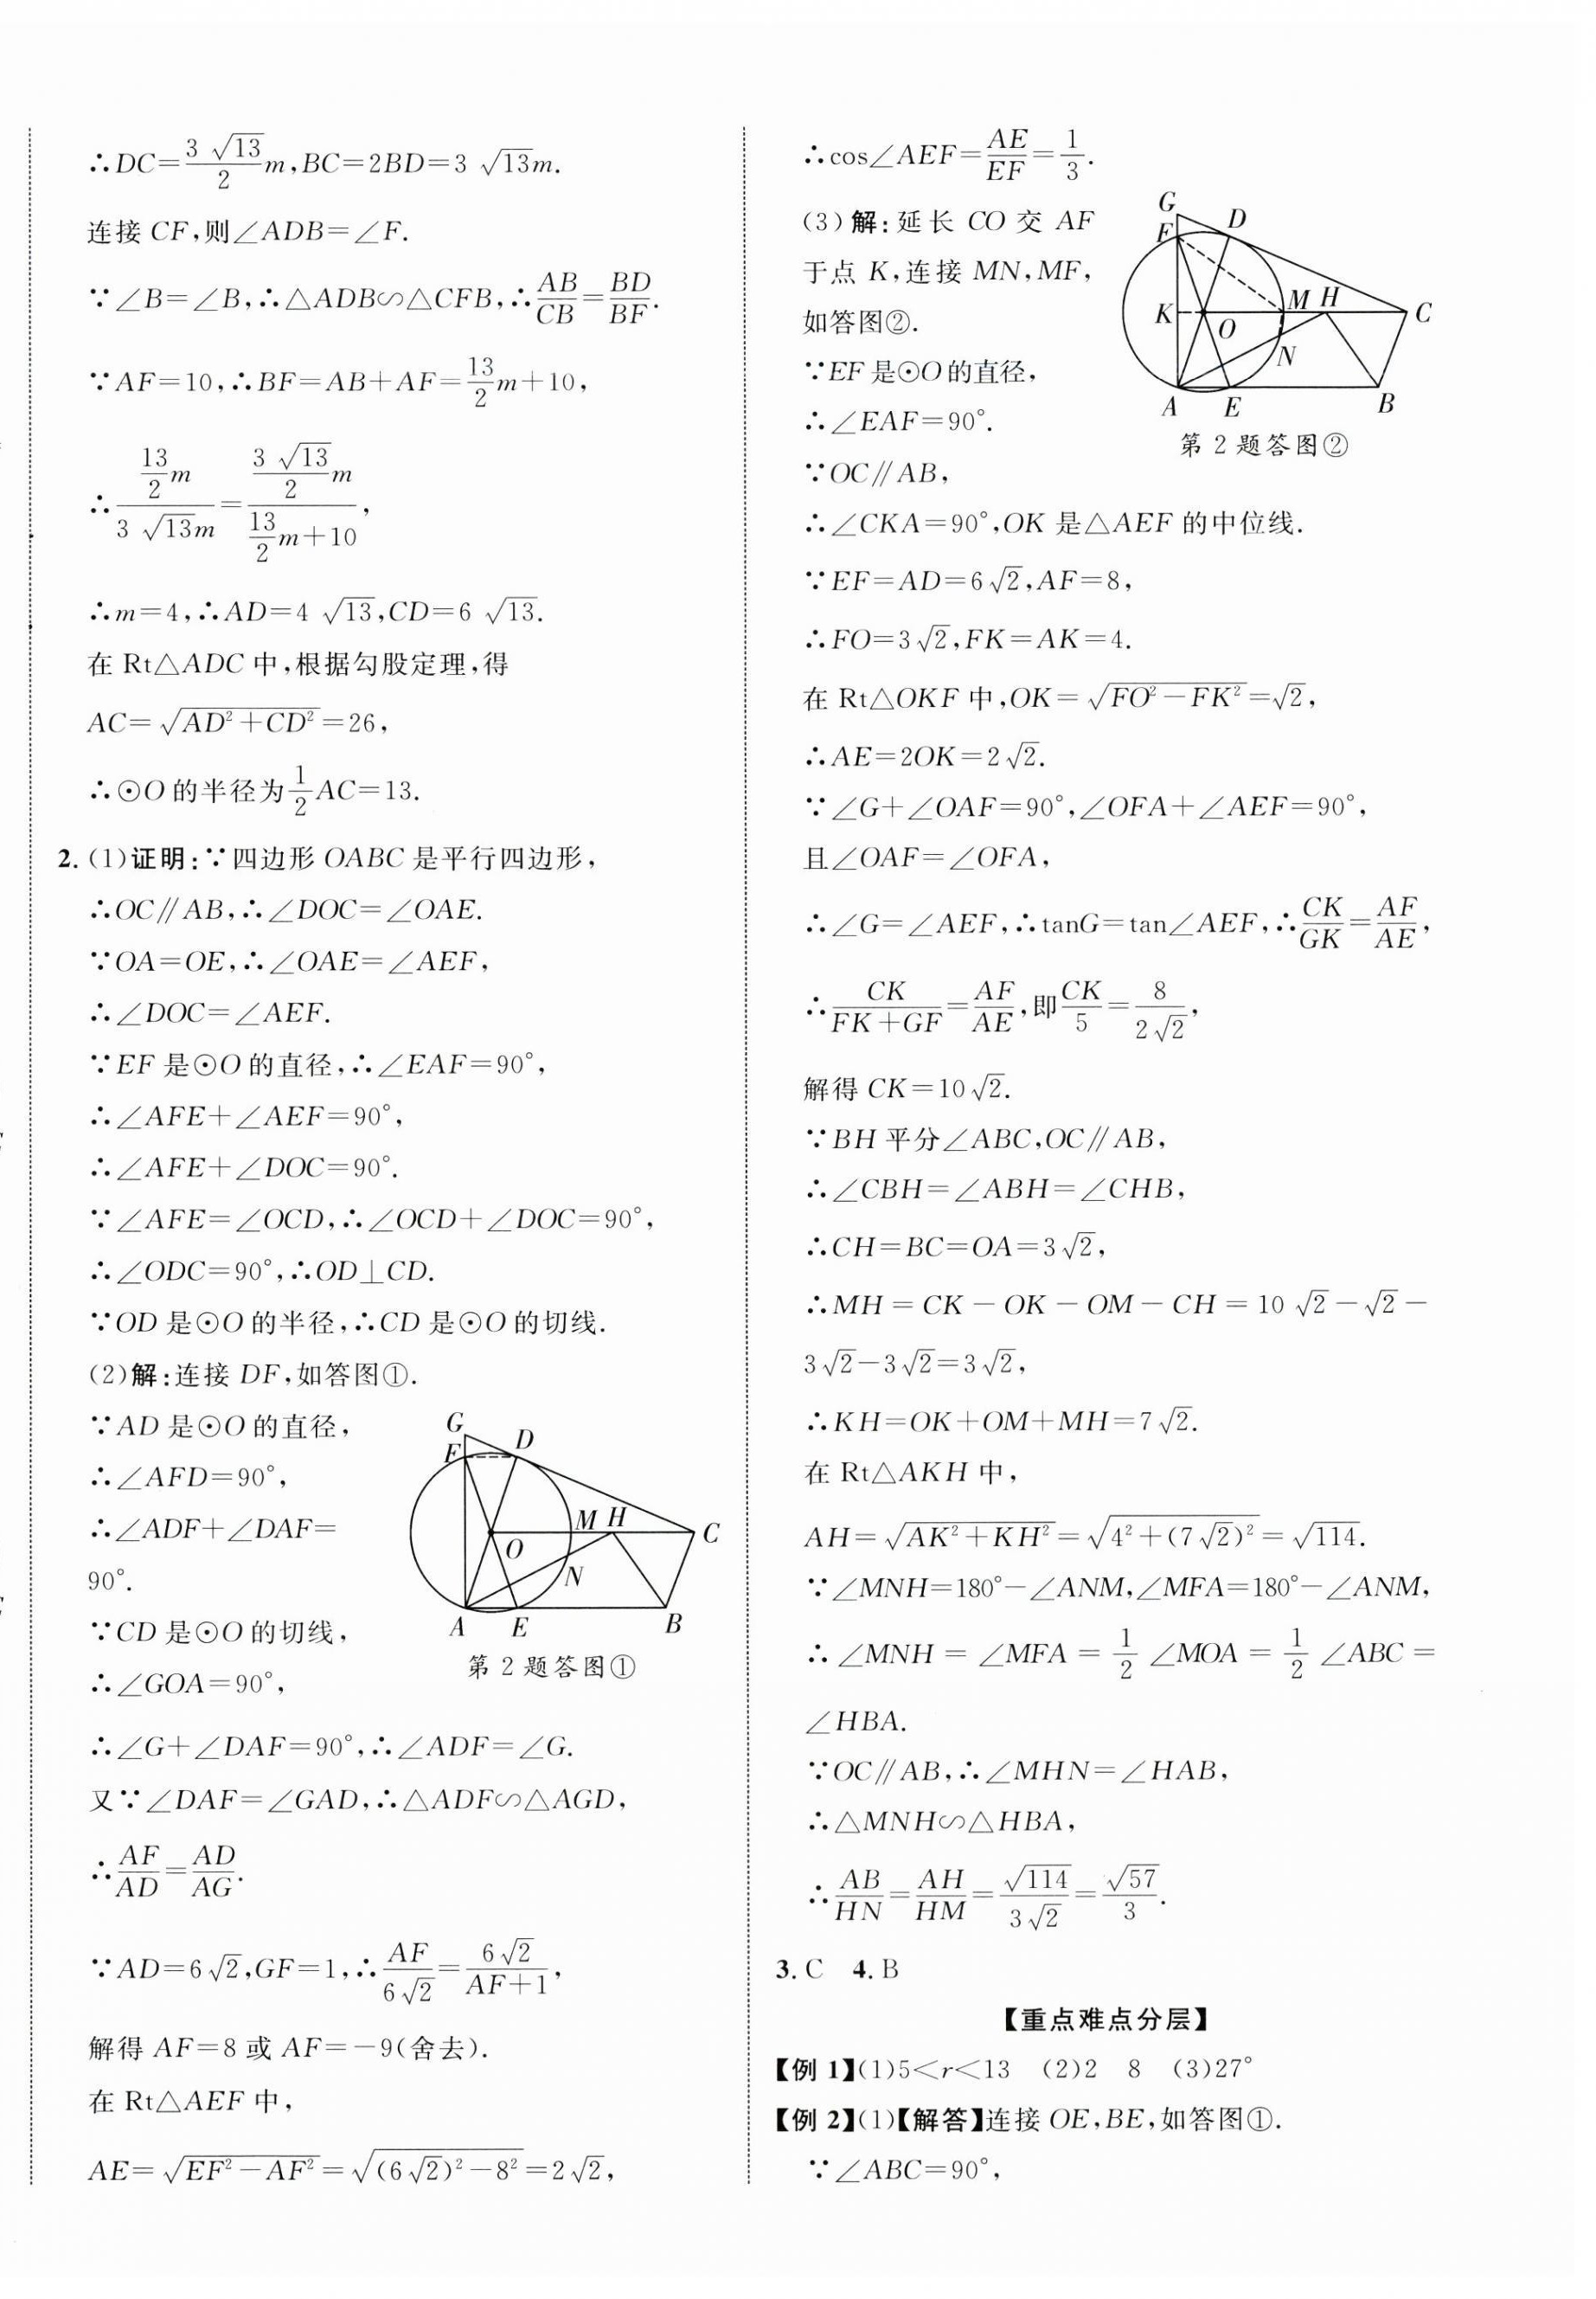 ∴DC=3√13/2 m,BC=2BD=3√13m.
连接 CF,则∠ADB=∠F.
∵∠B=∠B,∴△ADB∽△CFB,∴AB/CB=BD/BF.
∵AF=10,∴BF=AB+AF=13/2 m+10,
∴(13/2 m)/(3√13m)=(3√13/2 m)/(13/2 m+10),
∴m=4,∴AD=4√13,CD=6√13.
在 Rt△ADC 中,根据勾股定理,得
AC=√(AD²+CD²)=26,
∴⊙O 的半径为1/2 AC=13.
2.(1)证明:∵四边形 OABC 是平行四边形,
∴OC∥AB,∴∠DOC=∠OAE.
∵OA=OE,∴∠OAE=∠AEF,
∴∠DOC=∠AEF.
∵EF 是⊙O 的直径,∴∠EAF=90°,
∴∠AFE+∠AEF=90°,
∴∠AFE+∠DOC=90°.
∵∠AFE=∠OCD,∴∠OCD+∠DOC=90°,
∴∠ODC=90°,∴OD⊥CD.
∵OD 是⊙O 的半径,∴CD 是⊙O 的切线.
(2)解:连接 DF,如答图①.
∵AD 是⊙O 的直径,
∴∠AFD=90°,
∴∠ADF+∠DAF=
90°.
∵CD 是⊙O 的切线,
∴∠GOA=90°,
G
F
D
M
H
C
O
N
A
E
B
第 2 题答图①
∴∠G+∠DAF=90°,∴∠ADF=∠G.
又∵∠DAF=∠GAD,∴△ADF∽△AGD,
∴AF/AD=AD/AG.
∵AD=6√2,GF=1,∴AF/(6√2)=6√2/(AF+1),
解得 AF=8 或 AF=-9(舍去).
在 Rt△AEF 中,
AE=√(EF²-AF²)=√((6√2)²-8²)=2√2,
∴cos∠AEF=AE/EF=1/3.
(3)解:延长 CO 交 AF
于点 K,连接 MN,MF,
如答图②.
∵EF 是⊙O 的直径,
∴∠EAF=90°.
∵OC∥AB,
G
F
D
K
M
H
C
O
N
A
E
B
第 2 题答图②
∴∠CKA=90°,OK 是△AEF 的中位线.
∵EF=AD=6√2,AF=8,
∴FO=3√2,FK=AK=4.
在 Rt△OKF 中,OK=√(FO²-FK²)=√2,
∴AE=2OK=2√2.
∵∠G+∠OAF=90°,∠OFA+∠AEF=90°,
且∠OAF=∠OFA,
∴∠G=∠AEF,∴tanG=tan∠AEF,∴CK/GK=AF/AE,
∴CK/(FK+GF)=AF/AE,即CK/5=8/(2√2),
解得 CK=10√2.
∵BH 平分∠ABC,OC∥AB,
∴∠CBH=∠ABH=∠CHB,
∴CH=BC=OA=3√2,
∴MH=CK-OK-OM-CH=10√2-√2-
3√2-3√2=3√2,
∴KH=OK+OM+MH=7√2.
在 Rt△AKH 中,
AH=√(AK²+KH²)=√(4²+(7√2)²)=√114.
∵∠MNH=180°-∠ANM,∠MFA=180°-∠ANM,
∴∠MNH=∠MFA=1/2∠MOA=1/2∠ABC=
∠HBA.
∵OC∥AB,∴∠MHN=∠HAB,
∴△MNH∽△HBA,
∴AB/HN=AH/HM=√114/(3√2)=√57/3.
3.C 4.B
【重点难点分层】
【例 1】(1)5<r<13 (2)2 8 (3)27°
【例 2】(1)【解答】连接 OE,BE,如答图①.
∵∠ABC=90°,